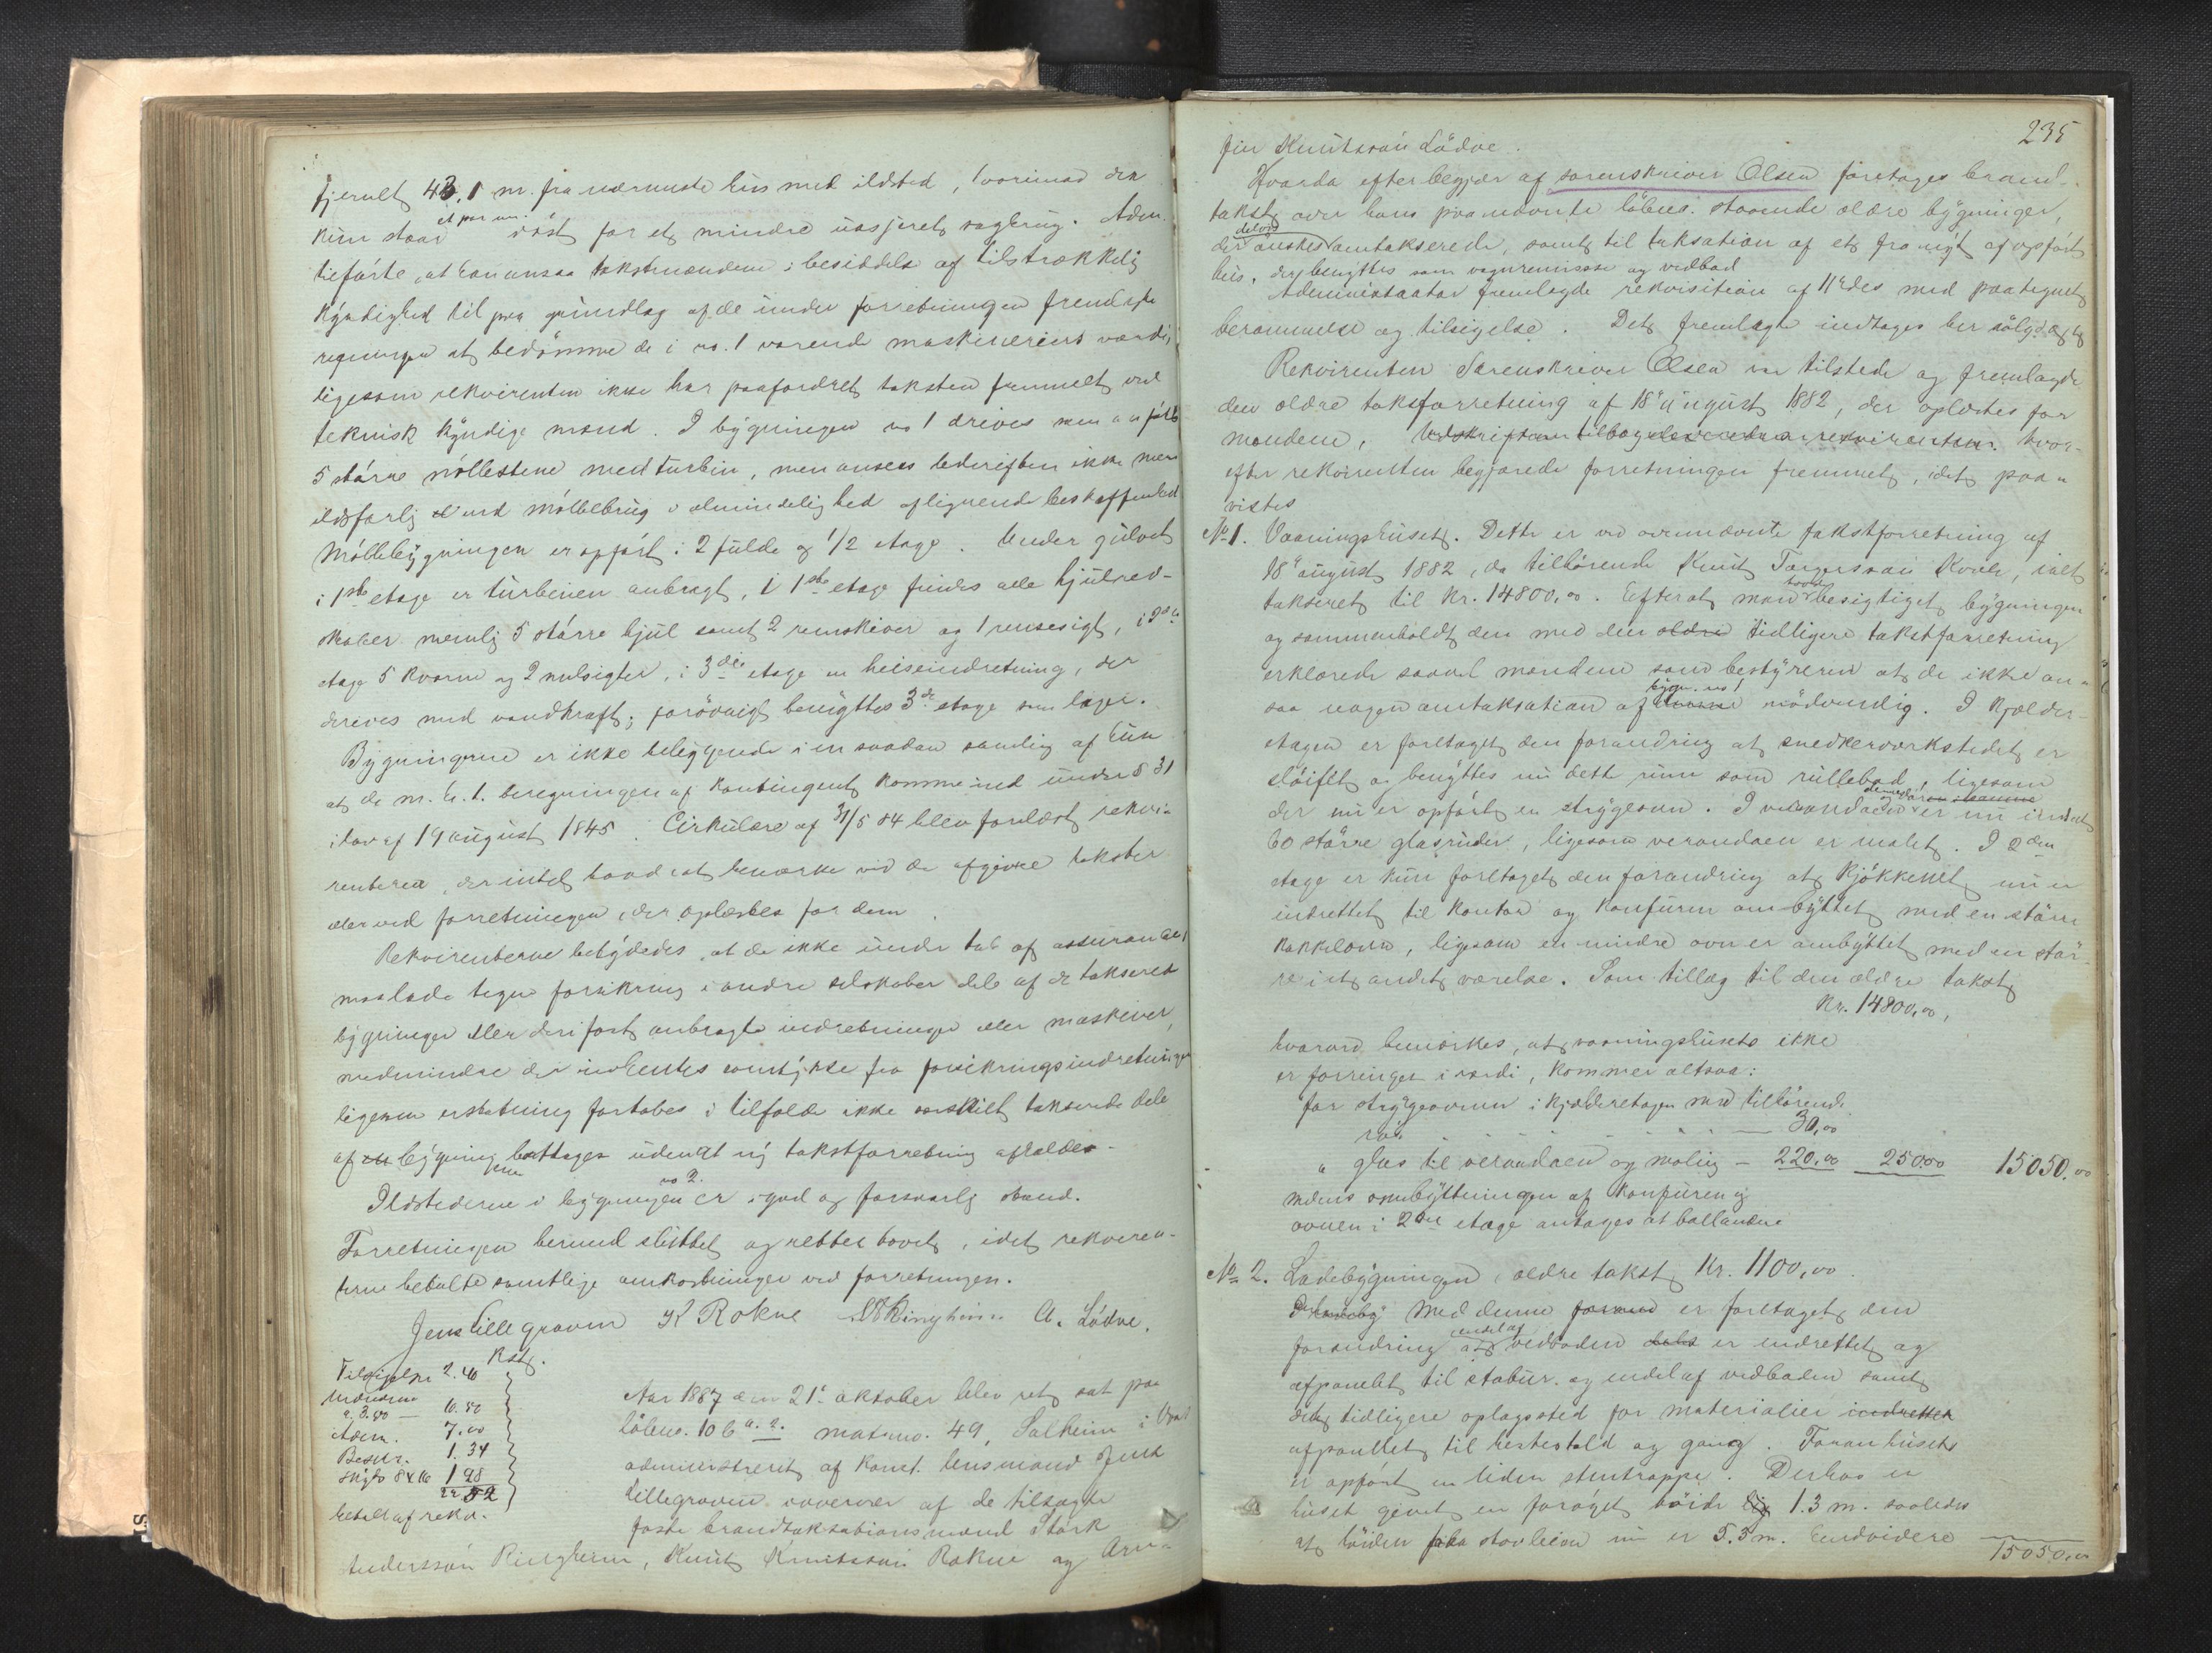 fjernet 43,1 m. fra nærmeste hus med ildsted, hvorimod der
kun staar et par m. vöst for et mindre uasjuret sagbrug. Adm.
tilförte, at han ansaa takstmændene i besiddelse af tilstrækkelig
kyndighed til paa grundlag af de under forretningen fremlagte
regninger at bedömme de i no. 1 værende maskineriers værdi,
ligesom rekvirenten ikke har paafordret taksten fremmet ved
teknisk kyndige mænd. I bygningen no 1 drives nemlig
5 större möllestene med turbin, men ansees bedriften ikke mere
ildsfarlig end möllebrug i almindelighed af lignende beskaffenhed
Möllebygningen er opfört i 2 fulde og 1/2 etage. Under gulvet
i 1ste etage er turbinen anbragt, i 1ste etage findes alle hjulred-
skaber nemlig 5 större hjul samt 2 remskiver og 1 rensesigt, i 2den
etage 5 kverne og 2 melsigter, i 3die etage en heiseindretning, der
drives med vandkraft; forövrigt benyttes 3de etage som lager.
Bygningerne er ikke beliggende i en saadan samling af hus
at de m. h. t. beregningen af kontingent komme ind under § 31
i lov af 19 august 1845. Cirkulære af 31/5 84 blev forelæst rekvi-
renterne, der intet havde at bemærke ved de afgivne takster
eller ved forretningen, der oplæstes for dem.
Rekvirenterne betydedes, at de ikke under tab af assurancen
maa lade tegne forsikring i andre selskaber dels af de takserede
bygninger eller deri fast anbragte indretninger eller maskiner,
medmindre der indhentes samtykke fra forsikringsindretningen
ligesom erstatning fortabes i tilfælde ikke særskilt takserede dele
af bygning borttages uden at ny takstforretning afholdes.
Ildstederne i bygningen no 2. er i god og forsvarlig stand.
Forretningen hermed sluttet og retten hævet, idet rekviren-
terne betalte samtlige omkostninger ved forretningen.
Jens Lillegraven K Rokne A. Lödve.
Rstg.
Tilsigelse 2.40
Mændene
a 3.60 — 10.80
Adm. 7.00
Beskr. 1.34
Skyds 8 1.98
52
betalt af rekv.
Aar 1887 den 21de oktober blev ret sat paa
löbeno. 106 a. 2. matr.no. 49, Salheim i Vos
administreret af konst. lensmand Jens
Lillegraven i overvær af de tilsagte
faste brandtaksationsmænd Stark
Anderssön Ringheim, Knut Knutssön Rokne og Arn-
235
fin Knutssön Lödve.
Hvorda efter begjær af sorenskriver Olsen foretages brand-
takst over hans paa nævnte löbeno. staaende ældre bygninger,
der delvis önskes omtakserede, samt til taksation af et fra nyt af opfört
hus, der benyttes som vognremisse og vedbod
Administrator fremlagde rekvisition af 11te ds med paategnet
berammelse og tilsigelse. Det fremlagte indtages her sölgdeg
Rekvirenten Sorenskriver Olsen var tilstede og fremlagde
den ældre takstforretning af 18de august 1882, der oplæstes for
mændene. Udskriften tilbageleveredes rekvirenten. hvor-
efter rekvirenten begjærede forretningen fremmet, idet paa-
vistes
No 1. Vaaningshuset. Dette er ved ovennævnte takstforretning af
18de august 1882, da tilhörende Knut Torgerssön Kvale, ialt
takseret til Kr. 14800,00. Efterat mænd havde besigtiget bygningen
og sammenholdt den med den ældre tidligere takstforretning
erklærede saavel mændene som bestyreren at de ikke an-
saa nogen omtaksation af bygn. no 1 nödvendig. I kjelder-
etagen er foretaget den forandring at snedkerværkstedet er
slöifet og benyttes nu dette rum som rullebod, ligesom
der nu er opfört en strygeovn. I verandaen er nu indsat
60 större glasruder, ligesom verandaen er malet. I 2den
etage er kun foretaget den forandring at kjökkenet nu er
indrettet til kontor og komfuren ombyttet med en större
kakkelovn, ligesom en mindre ovn er ombyttet med en stör-
re i et andet værelse. Som tillæg til den ældre takst
Kr. 14800,00,
hvorved bemærkes, at vaaningshuset ikke
er forringet i værdi, kommer altsaa:
for strygeovnen i kjelderetagen med tilhörende
rör - - - - - - 30,00
" glas til verandaen og maling — 220,00 250,00 15050,00
medens ombytningen af komfuren og
ovnen i 2den etage antages at ballancere
No 2. Ladebygningen, ældre takst Kr. 1100,00.
Med denne er foretaget den
forandring at endel af vedboden er indrettet og
afpanelet til stabur. og endel af vedboden samt
det tidligere oplagssted for materialier indrettet
afpanelet til hestestald og gang. Foran huset
er opfört en liden stentrappe. Derhos er
huset givet en foröget höide 1.3 m. saaledes
at höiden nu er 5.5 m. Endvidere
15050,00